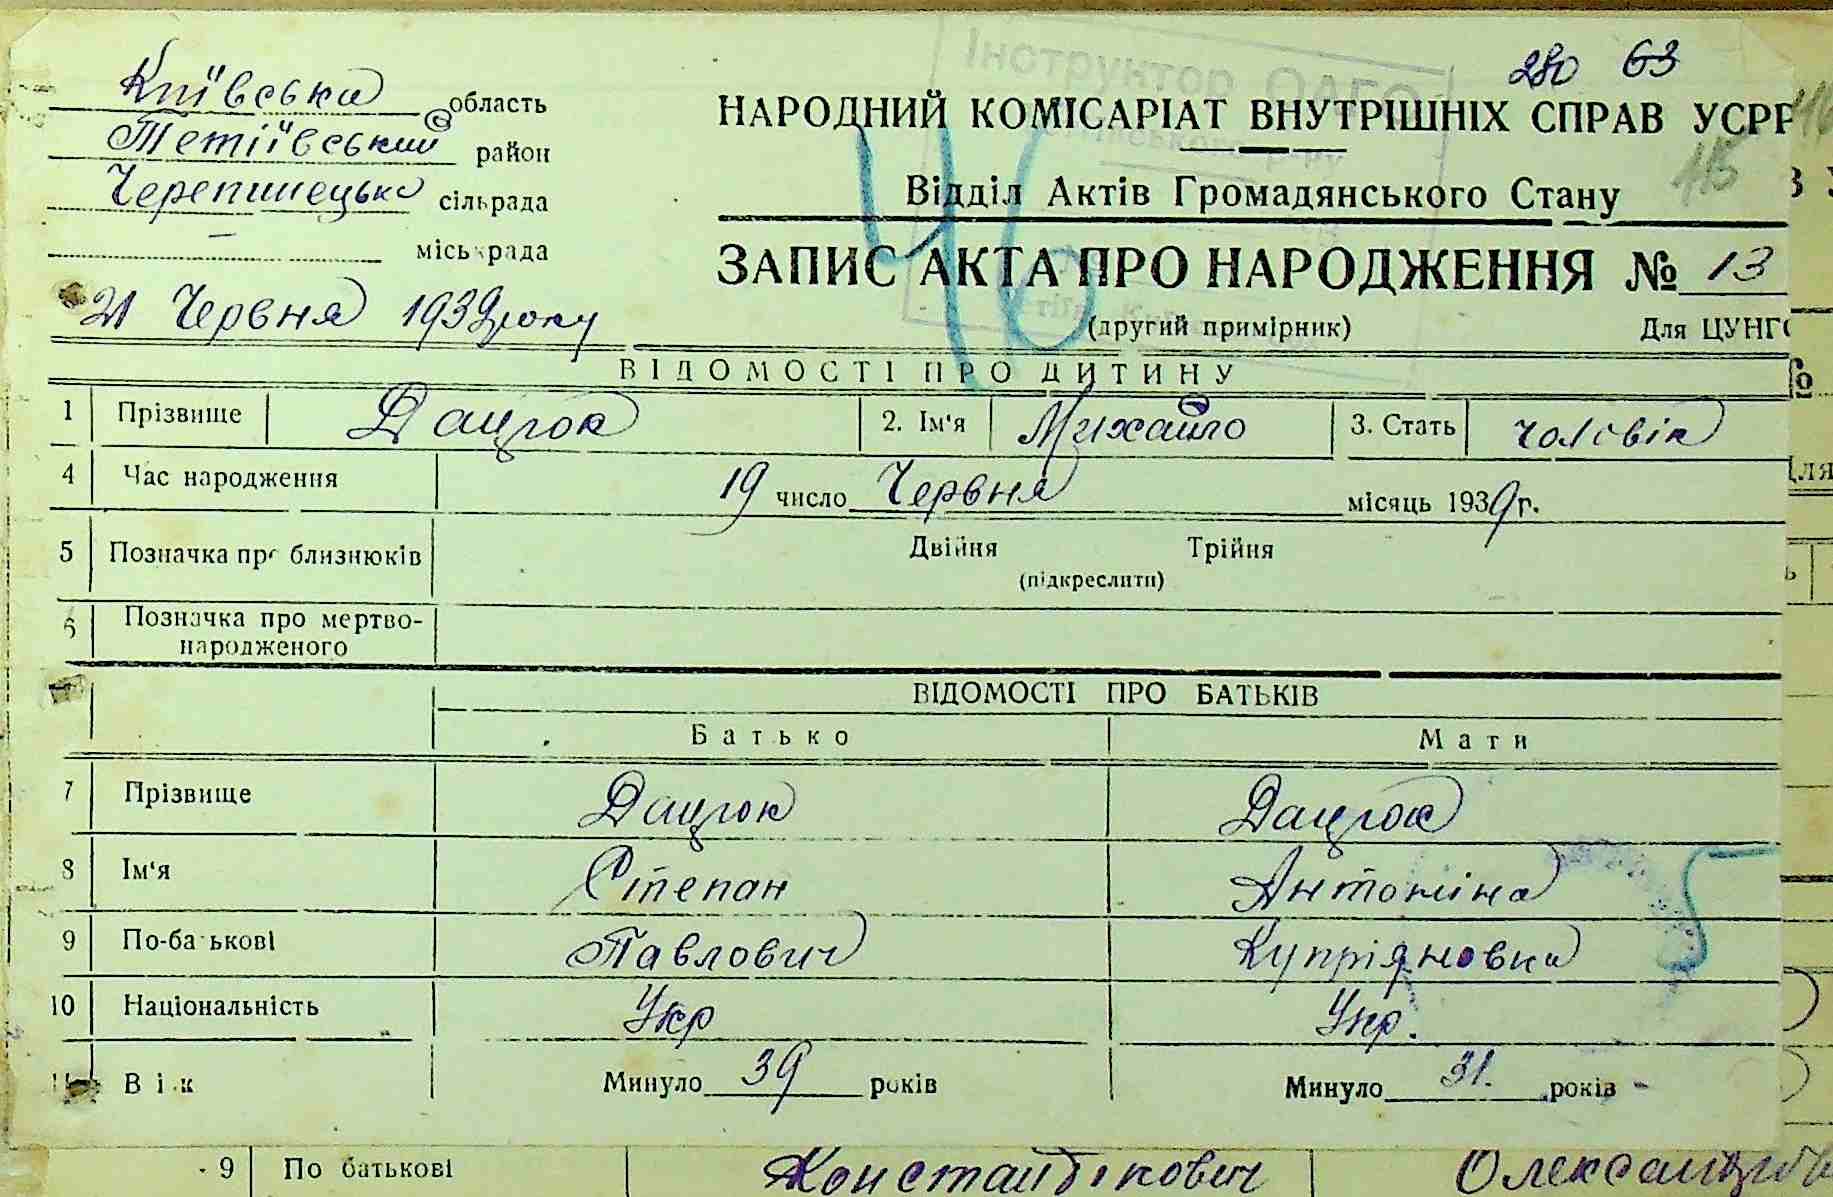 Київська область
280 63
Інструктор ОАГС
Тетіївський район
НАРОДНИЙ КОМІСАРІАТ ВНУТРІШНІХ СПРАВ УСРР
116
Черепинецька сільрада
Відділ Актів Громадянського Стану
115
міськрада
46
ЗАПИС АКТА ПРО НАРОДЖЕННЯ № 13
21 Червня 1939 року
(другий примірник) Для ЦУНГО
ВІДОМОСТІ ПРО ДИТИНУ
1 Прізвище Дацюк 2. Ім'я Михайло 3. Стать чоловік
4 Час народження 19 число Червня місяць 1939 г.
5 Позначка про близнюків Двійня Трійня
(підкреслити)
6 Позначка про мертво-
народженого
ВІДОМОСТІ ПРО БАТЬКІВ
Батько Мати
7 Прізвище Дацюк Дацюк
8 Ім'я Степан Антоніна
5
9 По-батькові Павлович Купріяновна
10 Національність Укр Укр.
11 Вік Минуло 39 років Минуло 31. років
9 По батькові Константінович